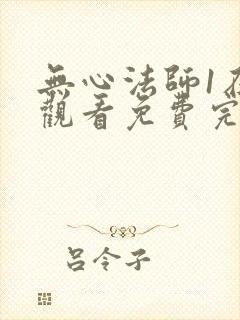 無心法師1在
觀看免費完
呂令子